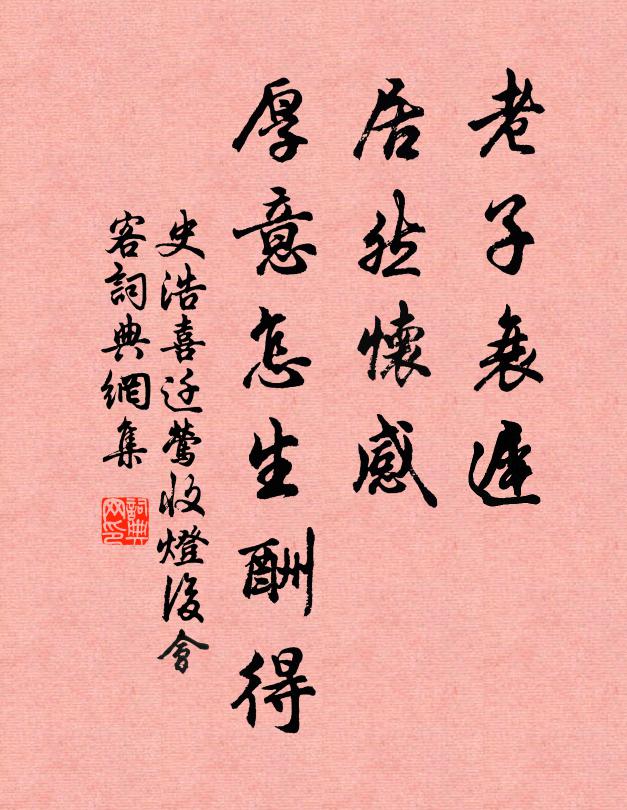 老子衰遲
居然懷感
厚意怎生酬得
史浩喜迁鶯收燈後會
客詞典網集
詞典网印